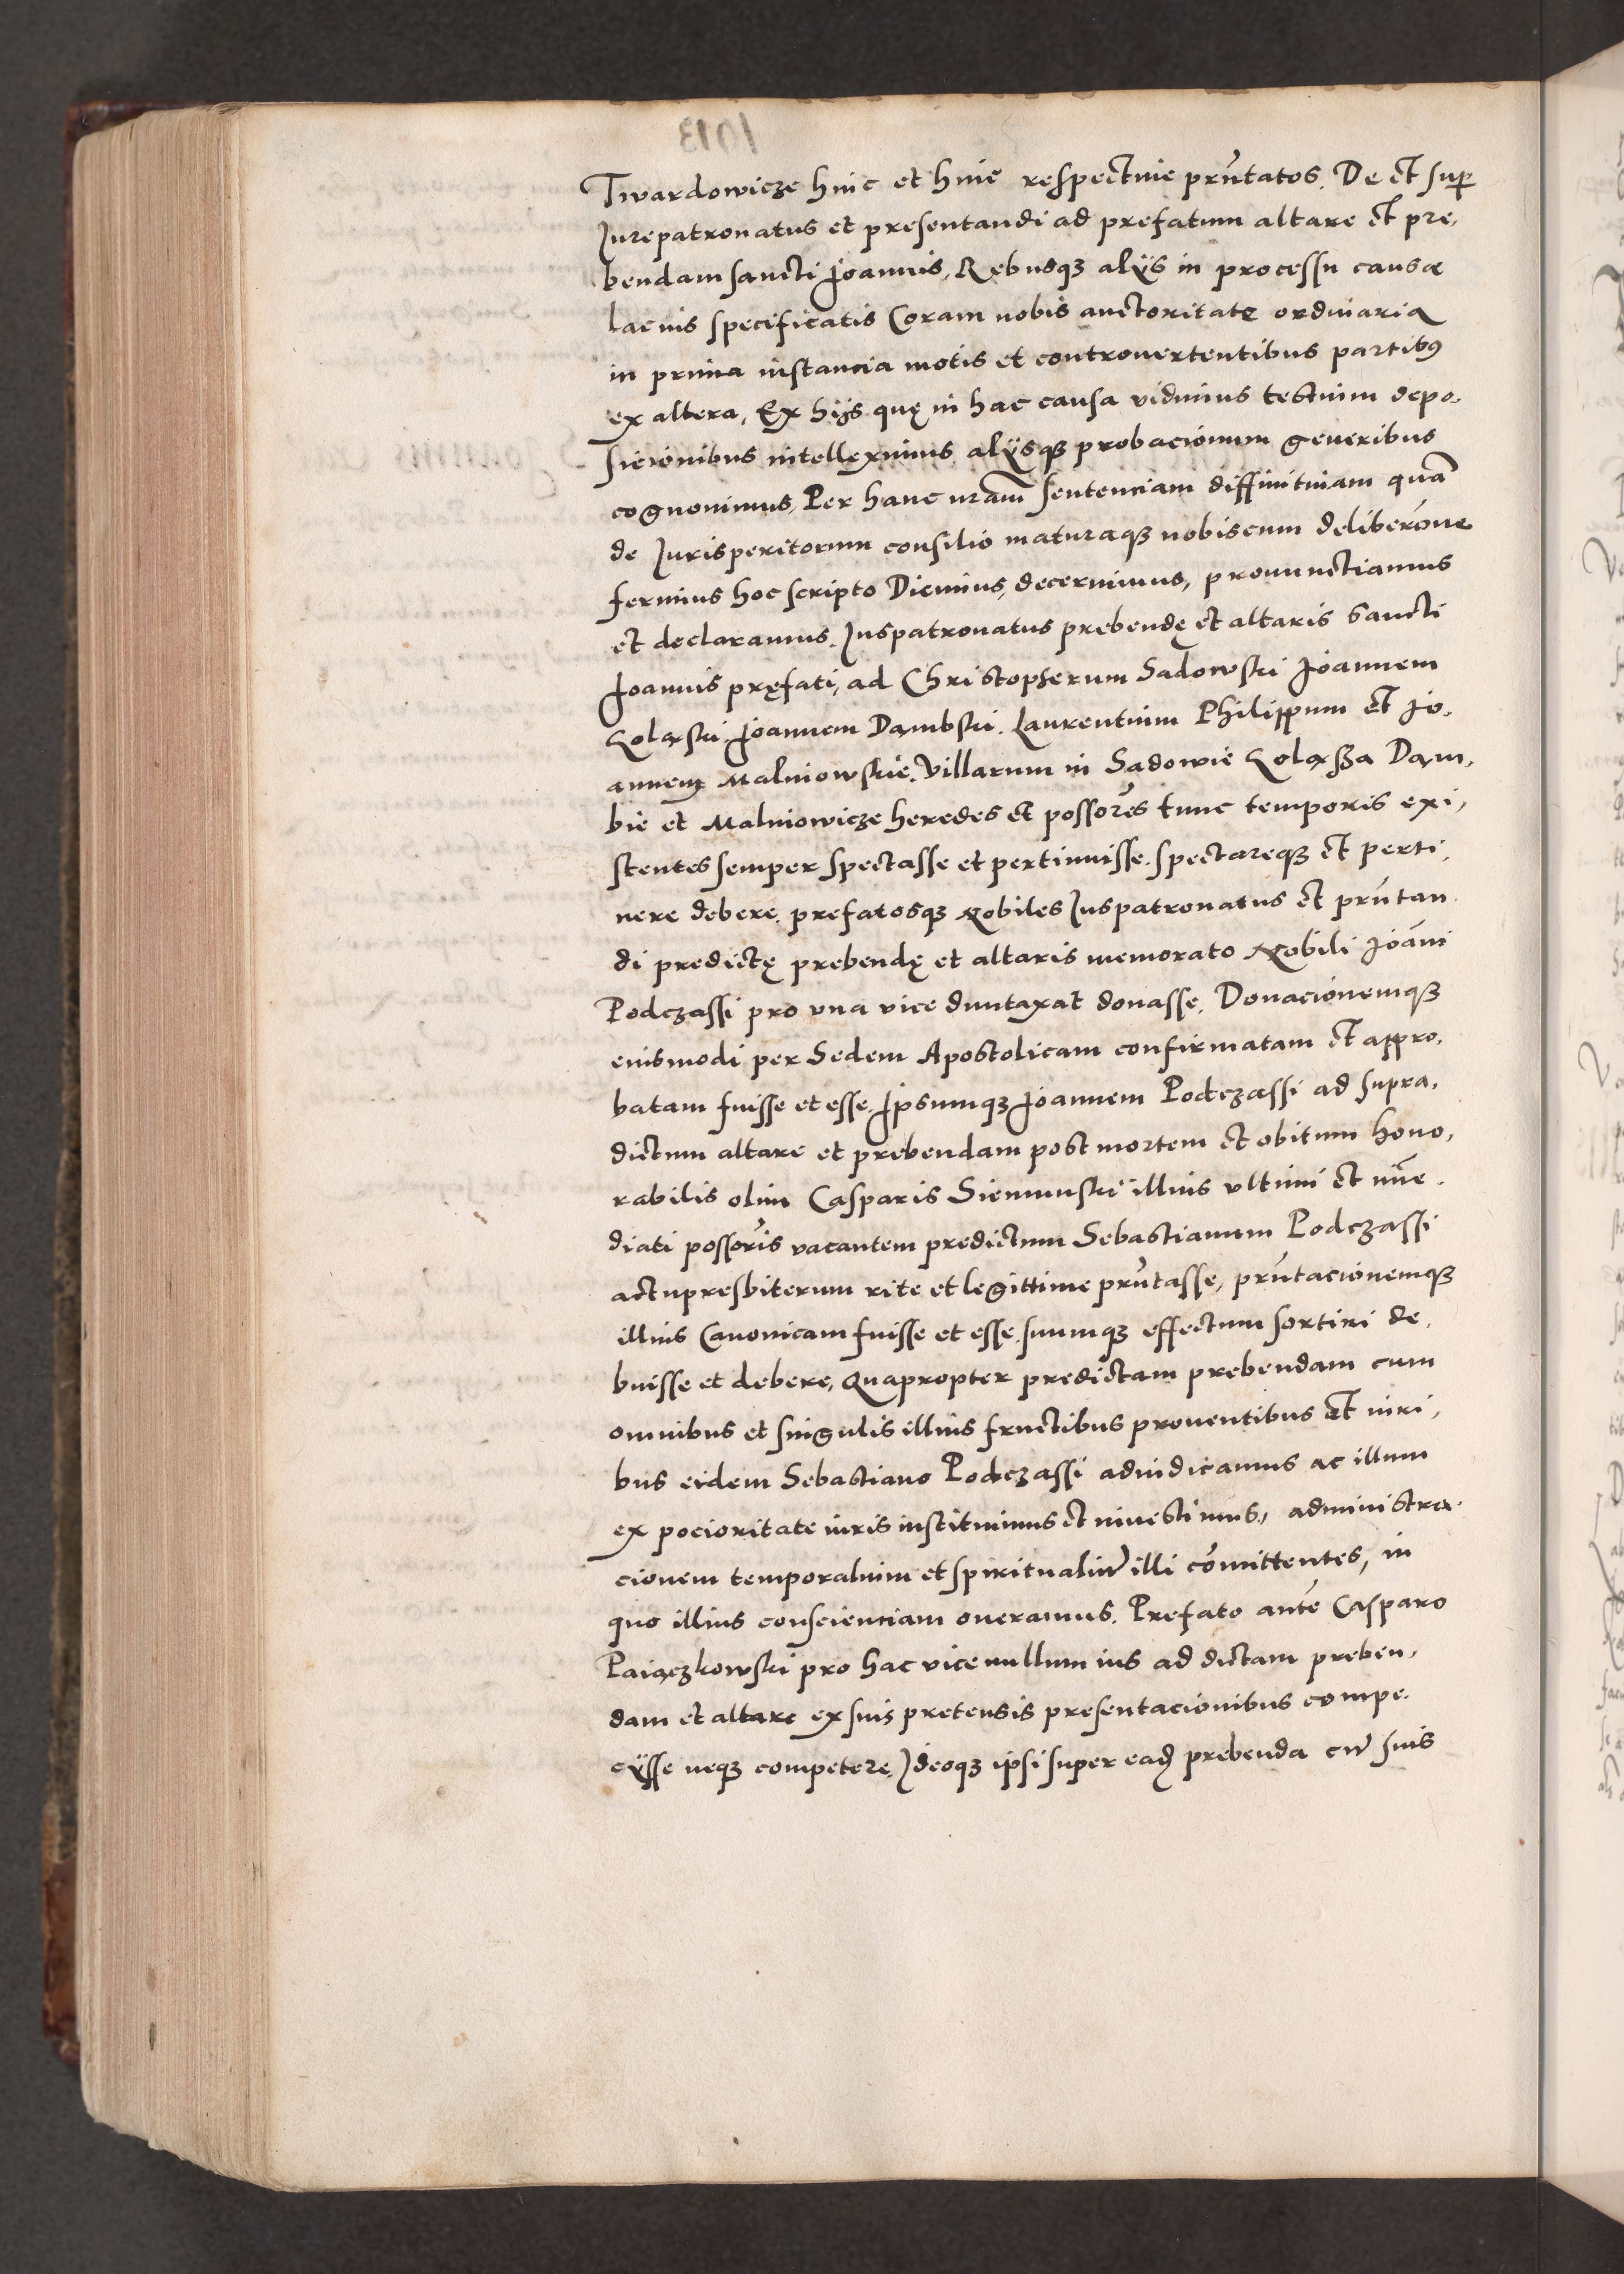 Twardowicze hinc et hinc respectiue pn̄tatos. De et sup
Iurepatronatus et presentandi ad prefatum altare et pre,
bendam sancti Joannis, Rebusq3 alijs in processu causæ
lacius specificatis Coram nobis auctoritate ordinaria
in prima instancia motis et controuertentibus partib9
ex altera, Ex hijs quę in hac causa vidimus testium depo,
sicionibus intelleximus alijsq3 probacionum generibus
cognouimus, Per hanc nr̄am sentenciam diffinitiuam quā
de Iurisperitorum consilio maturaq3 nobiscum deliberōne
ferimus hoc scripto Dicimus, decernimus, pronunctiamus
et declaramus. Iuspatronatus prebendę et altaris Sancti
Joannis pręfati, ad Christopherum Sadowski Joannem
Goląski Joannem Dąmbski. Laurentium Philippum et Jo,
annem Malniowskie. Villarum in Sadowie Goląssza Dąm,
bie et Malniowicze heredes et possor̄es tunc temporis exi,
stentes semper spectasse et pertinuisse. spectareq3 et perti,
nere debere. prefatosq3 Nobiles Iuspatronatus et pn̄tan
di predictę prebendę et altaris memorato Nobili Joāni
Podczassi pro vna vice duntaxat donasse. Donacionemq3
eiusmodi per Sedem Apostolicam confirmatam et appro,
batam fuisse et esse. Ipsumq3 Joannem Podczassi ad supra,
dictum altare et prebendam post mortem et obitum hono,
rabilis olim Casparis Siemuński illius vltimi et im̄e,
diati possor̄is vacantem predictum Sebastianum Podczassi
actupresbiterum rite et legittime pn̄tasse, pn̄tacionemq3
illius Canonicam fuisse et esse. suumq3 effectum sortiri de,
buisse et debere, Quapropter predictam prebendam cum
omnibus et singulis illius fructibus prouentibus et iuri,
bus eidem Sebastiano Podczassi adiudicamus ac illum
ex pocioritate iuris instituimus et inuestimus, administra,
cionem temporalium et spiritualiū illi com̄ittentes, in
quo illius conscienciam oneramus. Prefato autē Casparo
Paiączkowski pro hac vice nullum ius ad dictam preben,
dam et altare ex suis pretensis presentacionibus compe,
cijsse neq3 competere. Ideoq3 ipsi super ead prebenda cū suis